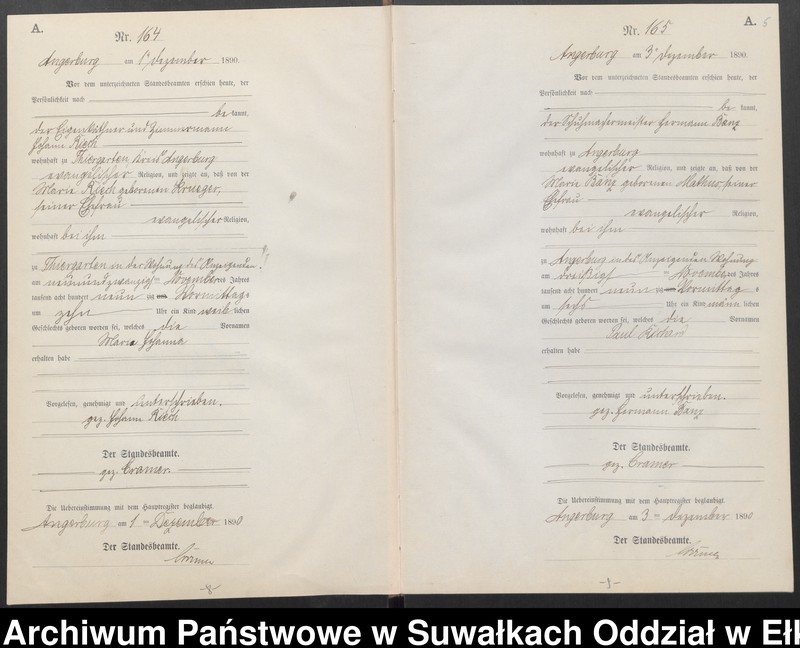 A.
Nr. 164
Angerburg am 1ten Dezember 1890.
Vor dem unterzeichneten Standesbeamten erschien heute, der
Persönlichkeit nach
be kannt,
der Eigenkäthner und Zimmermann
Johann Rieck
wohnhaft zu Thiergarten, Kreis Angerburg
evangelischer Religion, und zeigte an, daß von der
Marie Rieck geborenen Krueger,
seiner Ehefrau
evangelischer Religion,
wohnhaft bei ihm
zu Thiergarten in der Wohnung des Anzeigenden
am neunundzwanzigsten November des Jahres
tausend acht hundert neunzig Vormittags
um zehn Uhr ein Kind weiblichen
Geschlechts geboren worden sei, welches die Vornamen
Maria Johanna
erhalten habe
Vorgelesen, genehmigt und unterschrieben.
gez. Johann Rieck
Der Standesbeamte.
gez. Cramer.
Die Uebereinstimmung mit dem Hauptregister beglaubigt.
Angerburg am 1ten Dezember 1890
Der Standesbeamte.
Cramer
-8-
A. 6
Nr. 165
Angerburg am 3ten Dezember 1890.
Vor dem unterzeichneten Standesbeamten erschien heute, der
Persönlichkeit nach
be kannt,
der Schuhmachermeister Hermann Banz
wohnhaft zu Angerburg
evangelischer Religion, und zeigte an, daß von der
Marie Banz geborenen seiner
Ehefrau
evangelischer Religion,
wohnhaft bei ihm
zu Angerburg in des Anzeigenden Wohnung
am dreißigsten November des Jahres
tausend acht hundert neunzig Vormittags
um sechs Uhr ein Kind männlichen
Geschlechts geboren worden sei, welches die Vornamen
Paul Richard
erhalten habe
Vorgelesen, genehmigt und unterschrieben.
gez. Hermann Banz
Der Standesbeamte.
gez. Cramer
Die Uebereinstimmung mit dem Hauptregister beglaubigt.
Angerburg am 3ten Dezember 1890
Der Standesbeamte.
Cramer
Archiwum Państwowe w Suwałkach Oddział w Ełk